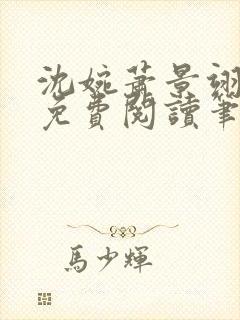 沈婉萧景翊
免費閱讀筆
馬少輝